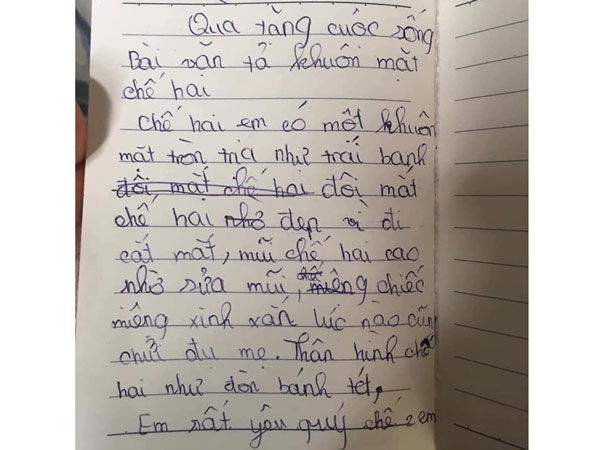 Qua tằng cuôc sống
Bài văn tả khuôn mặt
chế hai
Chế hai em có một khuôn
mặt tròn trịa như trái banh
đôi mắt chế hai đôi mắt
chế hai nhờ đẹp vì đi
cắt mắt, mũi chế hai cao
nhờ sửa mũi, miêng chiếc
miêng xinh xắn lúc nào cũng
chửi đu mẹ. Thân hình chế
hai như đòn bánh tét,
Em rất yêu quý chế 2 em